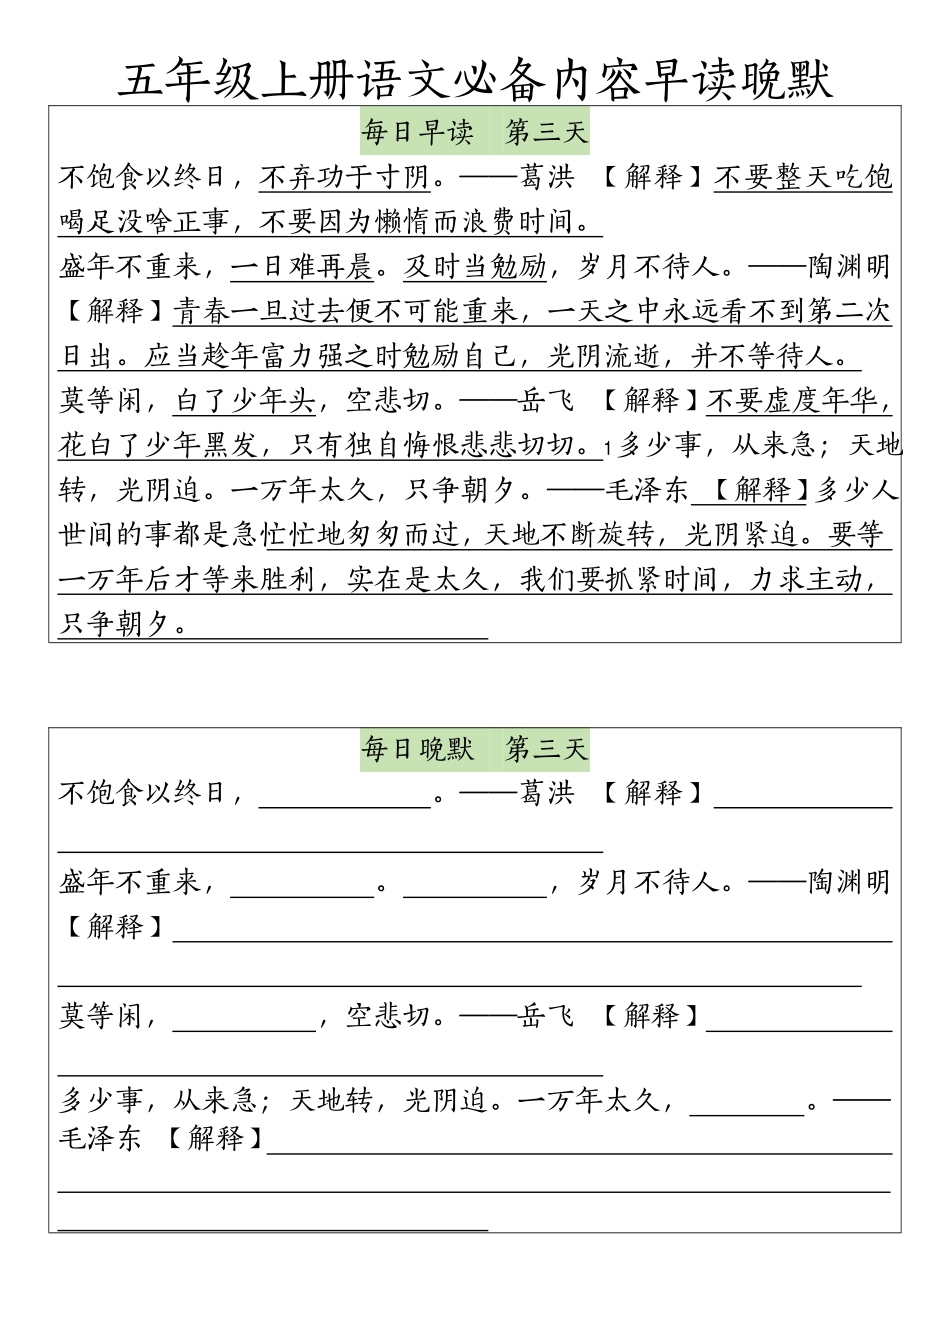 五年级上册语文必备内容早读晚默
每日早读 第三天
不饱食以终日，不弃功于寸阴。——葛洪 【解释】不要整天吃饱
喝足没啥正事，不要因为懒惰而浪费时间。
盛年不重来，一日难再晨。及时当勉励，岁月不待人。——陶渊明
【解释】青春一旦过去便不可能重来，一天之中永远看不到第二次
日出。应当趁年富力强之时勉励自己，光阴流逝，并不等待人。
莫等闲，白了少年头，空悲切。——岳飞 【解释】不要虚度年华，
花白了少年黑发，只有独自悔恨悲悲切切。1多少事，从来急；天地
转，光阴迫。一万年太久，只争朝夕。——毛泽东 【解释】多少人
世间的事都是急忙忙地匆匆而过，天地不断旋转，光阴紧迫。要等
一万年后才等来胜利，实在是太久，我们要抓紧时间，力求主动，
只争朝夕。
每日晚默 第三天
不饱食以终日，____________。——葛洪 【解释】____________
____________
盛年不重来，__________。__________，岁月不待人。——陶渊明
【解释】____________
____________
莫等闲，__________，空悲切。——岳飞 【解释】____________
____________
多少事，从来急；天地转，光阴迫。一万年太久，________。——
毛泽东 【解释】____________
____________
____________